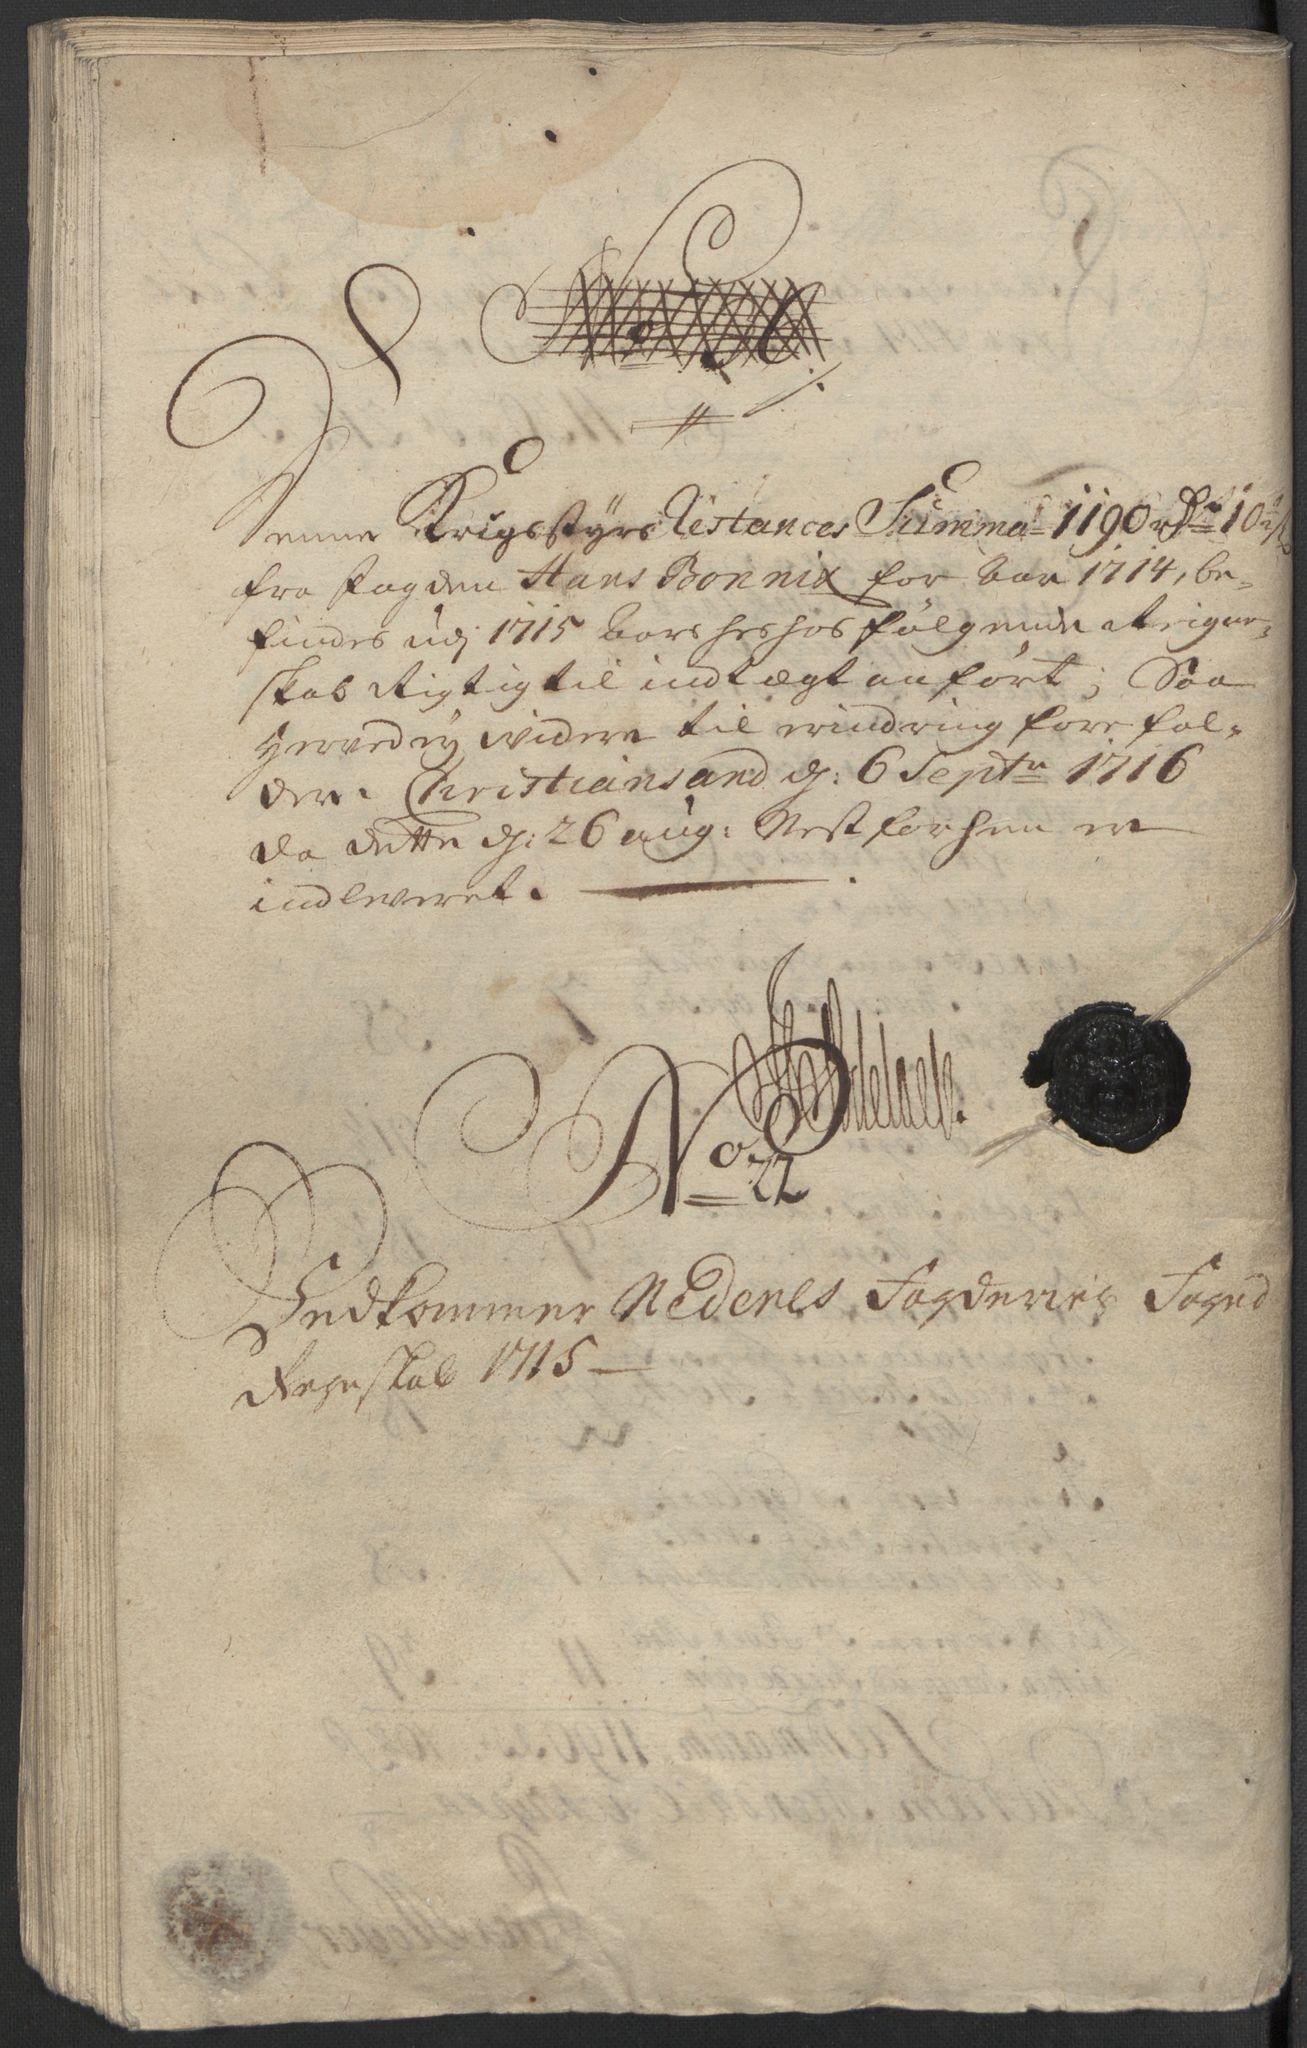 Denne Krigsstyrs Restances Summa 1190 rdr 10 s
fra fogden Hans Bonnix for aar 1714, be-
findes udj 1715 aars hos følgende Reigne-
skab Rigtig til indtægt anført; Saa
herved ej videre til erindring forefal-
der. Christiansand d: 6 Septr 1716
da dette d: 26 aug: Nest forhen er
indleveret.
No 22
Vedkommer Nedenes Fogderies Foged
Regeskab 1715